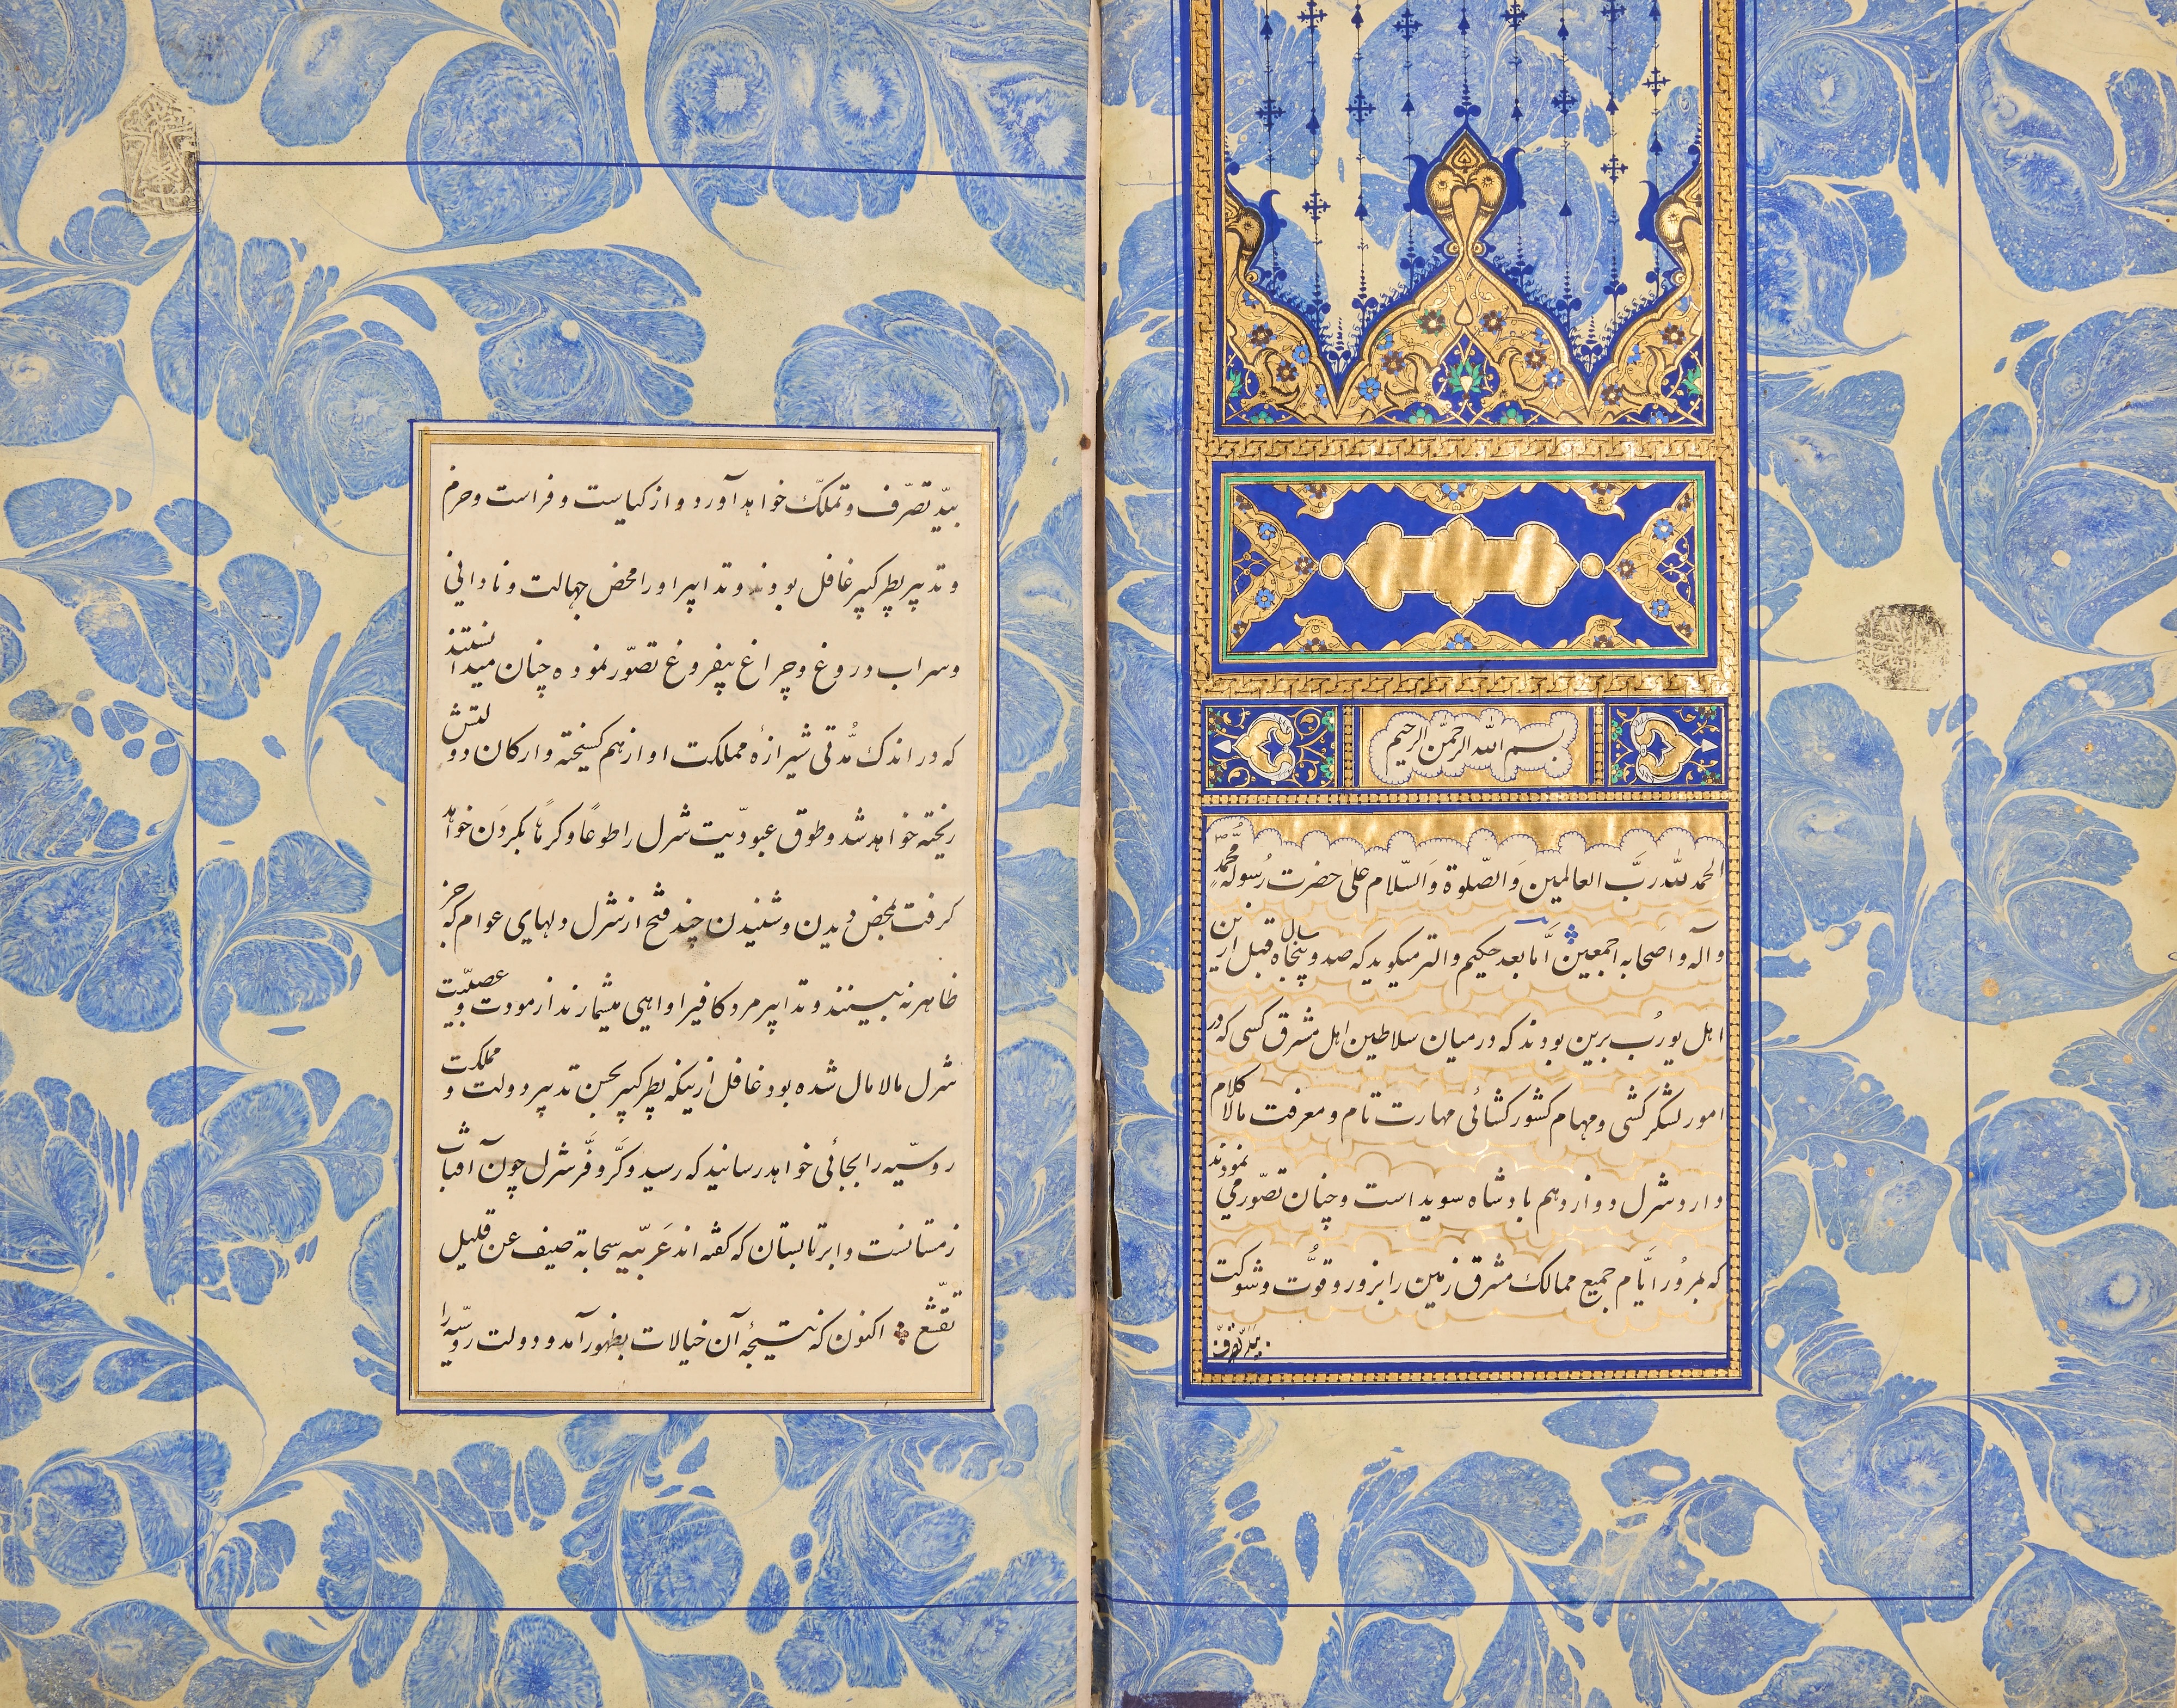 بسم الله الرحمن الرحیم
الحمد لله ربَّ العالمین وَالصّلوة وَالسّلام علی حضرت رُسوله محمّدٍ
و آله و اَصحابه اجمعین امّا بعد حکیم والتر میکوید که صد و پنجاه سال قبل ازین
اهل یورُب برین بودند که در میان سلاطین اهل مشرق کسی که در
امور لشکر کشی و مهام کشور کشائی مهارت تام و معرفت مالاکلام
دارد شرل دوازدهم بادشاه سوید است و چنان تصّور می نمودند
که بمرُور ایَّام جمیع ممالک مشرق زمین را بزور و قوَّت و شوکت
بیدّ تصرّف
بیدّ تصرّف و تملّک خواهد آورد و از کیاست و فراست و حزم
و تدبیر پطر کبیر غافل بودند و تدابیر او را محض جهالت و نادانی
و سراب دروغ و چراغ بیفروغ تصوّر نموده چنان میدانستند
که در اندک مُدّتی شیرازهٔ مملکت او از هم کسیخته و ارکان دولتش
ریخته خواهد شد و طوق عبودیّت شرل را طوعاً و کرهاً بکردَن خواهد
کرفت بمحض دیدن و شنیدن چند فتح از شرل دلهای عوام که جز
ظاهر نه بینند و تدابیر مرد کافی را واهی میشمارند از مودت و عصبیّت
شرل مالامال شده بود غافل ازینکه پطر کبیر بحسن تدبیر دولت و مملکت
روسیّه را بجائی خواهد رسانید که رسید و کَرّ و فَرّ شرل چون آفتاب
زمستانست و ابر تابستان که کفته اند عَرَبیّه سحابة صیف عن قلیل
تقشّع اکنون که نتیجهٔ آن خیالات بظهور آمد و دولت روسیّه را